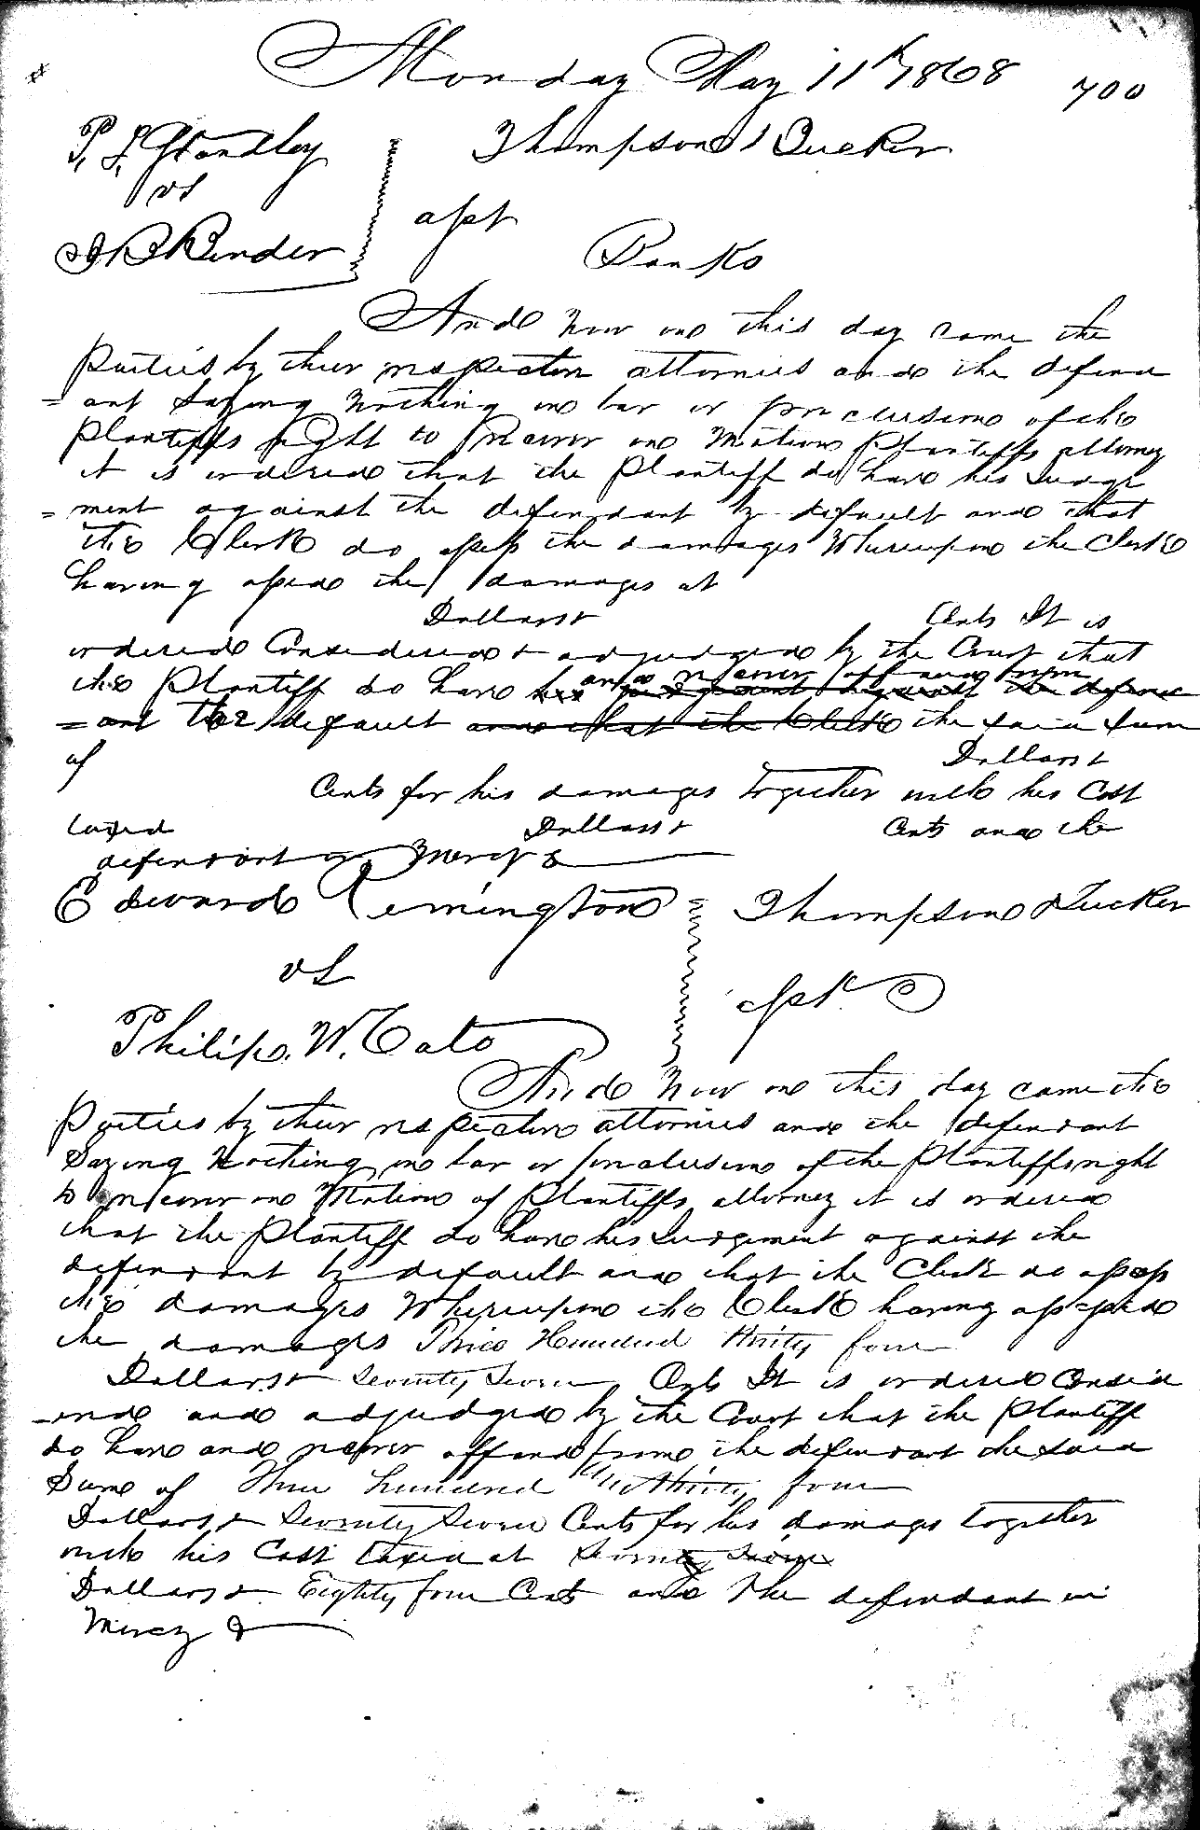 Monday May 11th 1868 700
P. L. Standley Thompson & Tucker
vs
apt
J B Render Banks
And now on this day came the
Parties by their respective attornies and the defend
= ant saying nothing in bar or preclusion of the
Plantiffs right to recover on motion Plantiffs attorney
it is ordered that the Plantiff do have his Judge
= ment against the defendant by default and that
the Clerk do assess the damages Whereupon the Clerk
having assessed the damages at
Dollars & Cents It is
ordered Considered & adjudged by the Court that
and recover off and from
the Plantiff do have his judgment against the defend
= ant by default and that the Clerk the said sum
of Dollars &
Cents for his damages together with his Cost
taxed Dollars & Cents and the
defendant in Mercy &
Edward Remington Thompson & Tucker
vs
apt.
Philip. W. Cato
And now on this day came the
Parties by their respective attornies and the defendant
Saying Nothing in bar or preclusion of the Plantiffs right
to recover on Motion of Plantiffs attorney it is ordered
that the Plantiff do have his Judgement against the
defendant by default and that the Clerk do assess
the damages Whereupon the Clerk having assessed
the damages Three Hundred thirty four
Dollars & Seventy Seven Cents It is ordered Consid
= ered and adjudged by the Court that the Plantiff
do have and recover off and from the defendant the said
Sum of Three hundred thirty four
Dollars & Seventy Seven Cents for his damages together
with his Cost taxed at Seventy Seven
Dollars & Eighty four Cents and the defendant in
Mercy &